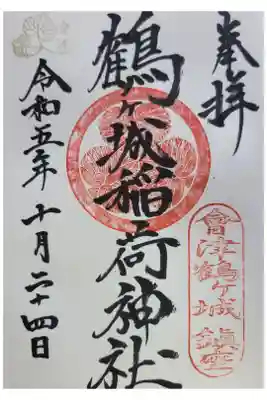 奉拝
會津鶴ヶ城 鎮座
鶴ヶ城稲荷神社
令和五年 十月二十四日